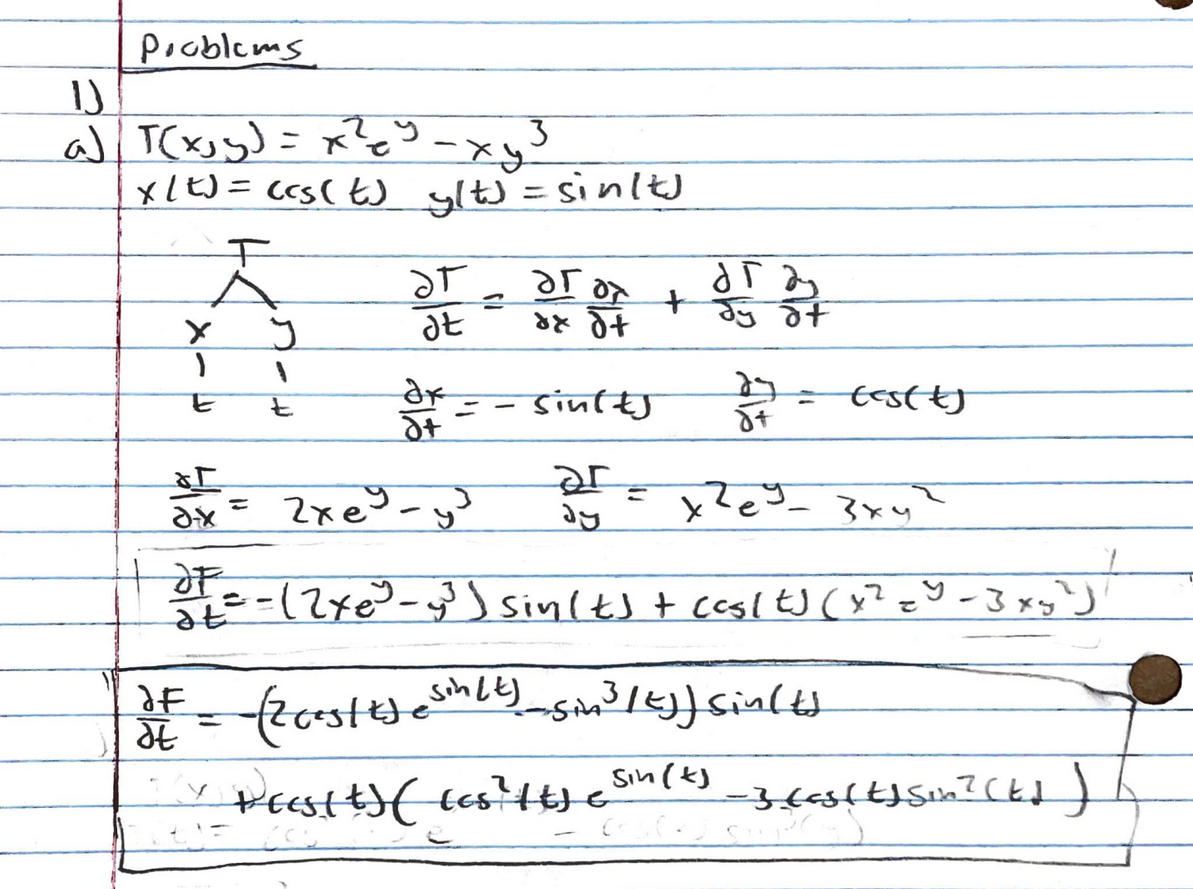 Problems
1)
a) T(x,y) = x²e^y - xy³
x(t) = cos(t) y(t) = sin(t)
T
∂T/∂t = ∂T/∂x ∂x/∂t + ∂T/∂y ∂y/∂t
x y
t t
∂x/∂t = - sin(t) ∂y/∂t = cos(t)
∂T/∂x = 2xe^y - y³ ∂T/∂y = x²e^y - 3xy²
∂F/∂t = -(2xe^y - y³) sin(t) + cos(t) (x²e^y - 3xy²)
∂F/∂t = -(2cos(t)e^sin(t) - sin³(t)) sin(t)
+ cos(t)( cos²(t) e^sin(t) - 3cos(t)sin²(t) )